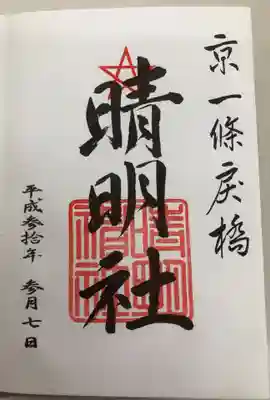 京一條戻橋
晴明社
平成参拾年 参月七日